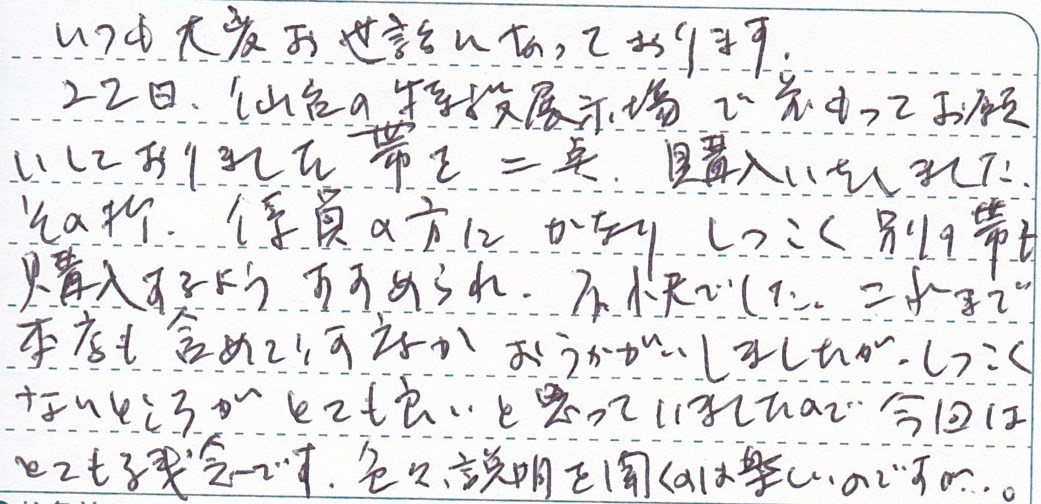 いつも大変お世話になっております。
22日、仙台の特設展示場で前もってお願
いしておりました帯を二点、購入いたしました。
その折、係員の方にかなりしつこく別の帯も
購入するようすすめられ、不快でした。これまで
本店も含めていく度かおうかがいしましたが、しつこく
ないところがとても良いと思っていましたので今回は
とても残念です。色々説明を聞くのは楽しいのですが…。